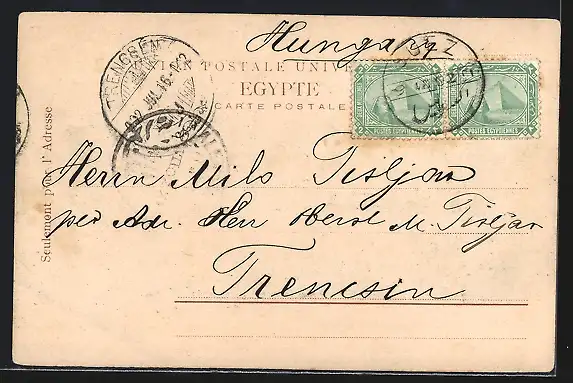 Hungary
UNION POSTALE UNIVERSELLE
EGYPTE
CARTE POSTALE
POSTES EGYPTIENNES
POSTES EGYPTIENNES
TRENCSÉN
Seulement pour l'Adresse
Herrn Milo Tisljar
per Adr. Herr Oberst M. Tisljar
Trencsin